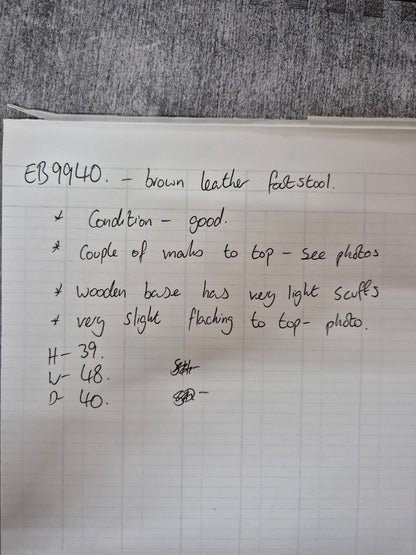 EB9940. - brown leather footstool.
* Condition - good.
* Couple of marks to top - see photos
* wooden base has very light scuffs
* very slight flacking to top - photo.
H - 39.
W - 48.
D - 40.